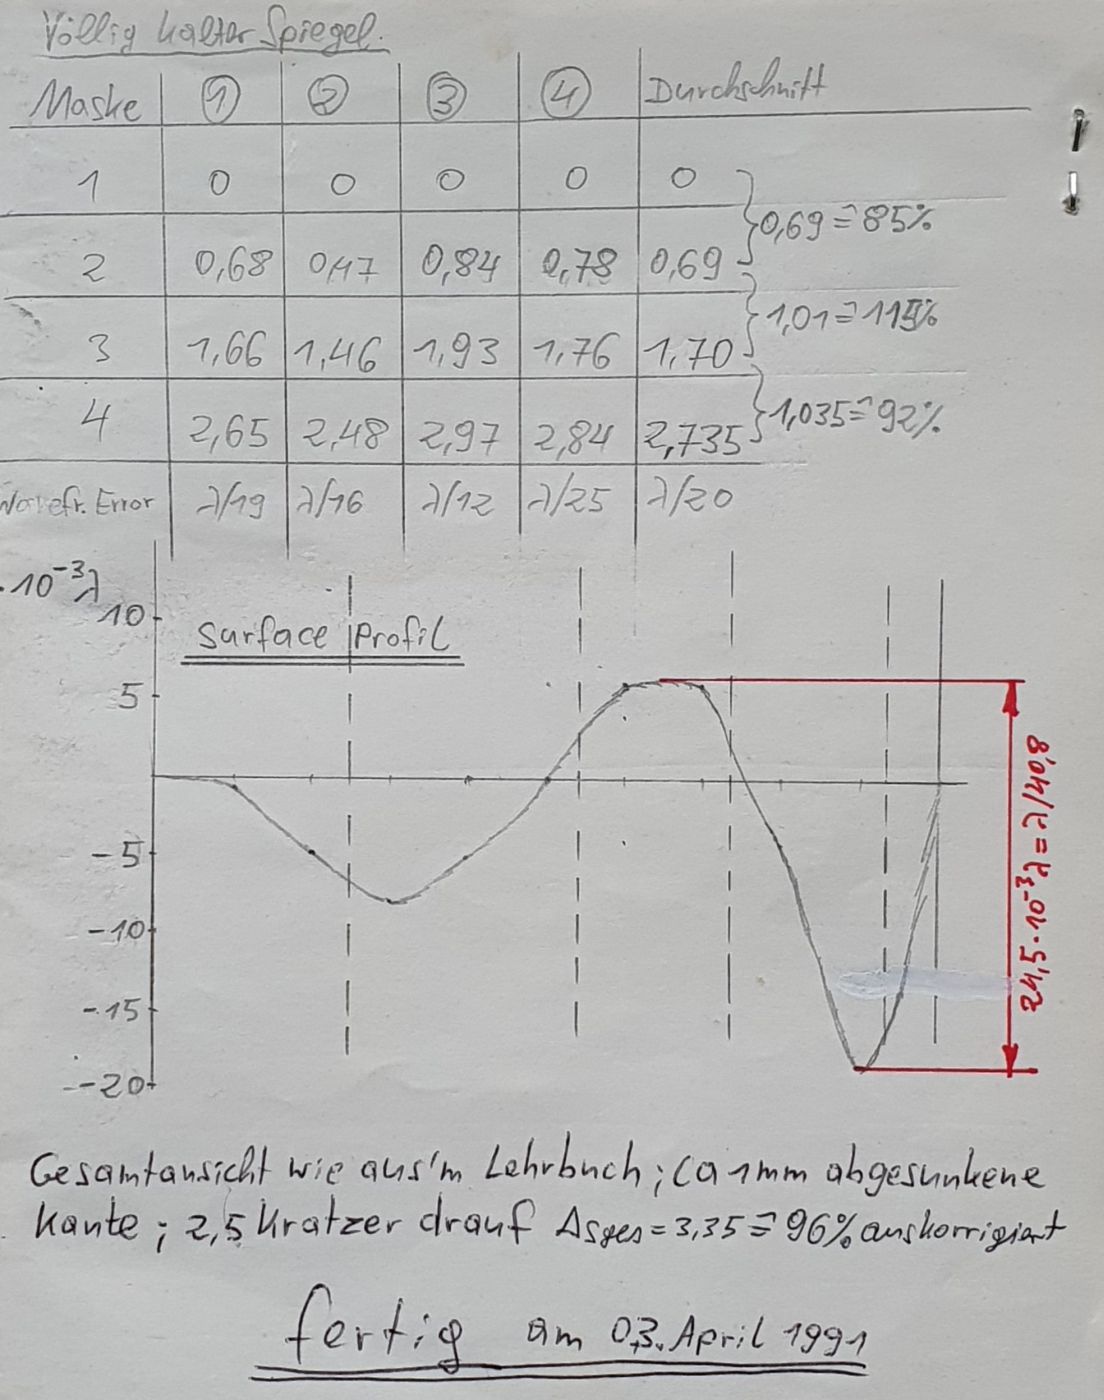 Völlig kalter Spiegel.
Maske 1 2 3 4 Durchschnitt
1 0 0 0 0 0
0,69 ≙ 85%
2 0,68 0,47 0,84 0,78 0,69
1,01 ≙ 115%
3 1,66 1,46 1,93 1,76 1,70
1,035 ≙ 92%
4 2,65 2,48 2,97 2,84 2,735
Wavefr. Error λ/19 λ/16 λ/12 λ/25 λ/20
·10⁻³λ
10
Surface Profil
5
-5
-10
-15
-20
24,5·10⁻³λ = λ/40,8
Gesamtansicht wie aus'm Lehrbuch; ca 1mm abgesunkene
Kante; 2,5 Kratzer drauf Δsges = 3,35 ≙ 96% auskorrigiert
fertig am 03. April 1991